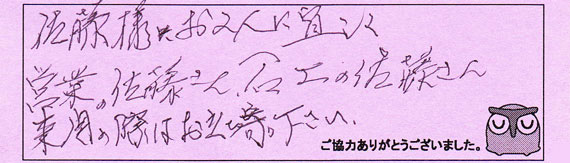 佐藤様はお二人に宜しく
営業の佐藤さん、石工の佐藤さん
来周の際はお立ち寄り下さい、
ご協力ありがとうございました。